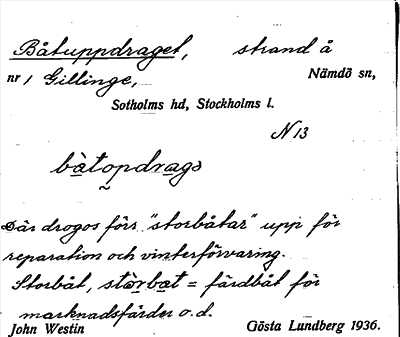 Båtuppdraget, strand å
nr 1 Gillinge, Nämdö sn,
Sotholms hd, Stockholms l.
N 13
bàtopdrags
Där drogos förr "storbåtar" upp för
reparation och vinterförvaring.
Storbåt, stòrbat = färdbåt för
marknadsfärder o.d.
John Westin Gösta Lundberg 1936.